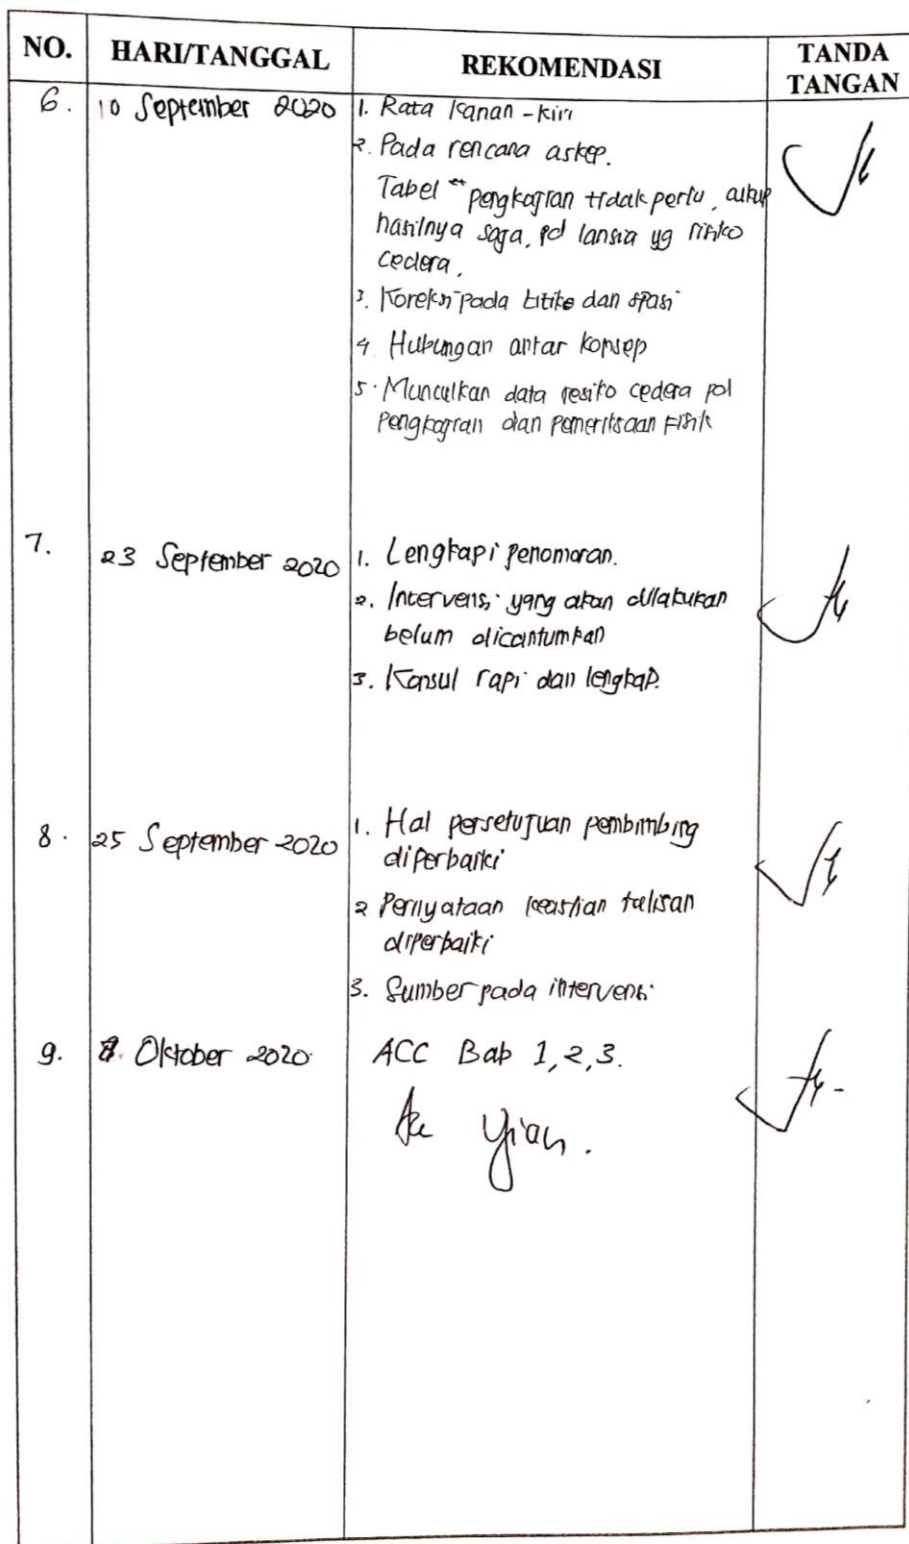 NO. HARI/TANGGAL REKOMENDASI TANDA TANGAN
6. 10 September 2020 1. Rata Kanan - kiri
2. Pada rencana askep.
Tabel " pengkajian tidak perlu, cukup
hasilnya saja, pd lansia yg risiko
cedera.
3. Koreksi pada titik dan spasi
4. Hubungan antar konsep
5. Munculkan data resiko cedera pd
Pengkajian dan pemeriksaan Fisik
7. 23 September 2020 1. Lengkapi penomoran.
2. Intervensi yang akan dilakukan
belum dicantumkan
3. Konsul rapi dan lengkap.
8. 25 September 2020 1. Hal persetujuan pembimbing
diperbaiki
2 Pernyataan keaslian tulisan
diperbaiki
3. Sumber pada intervensi
9. Oktober 2020 ACC Bab 1, 2, 3.
Ujian.